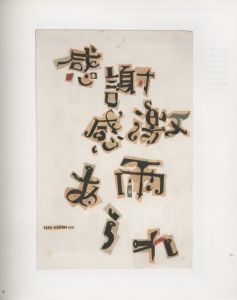 感謝
感激
雨
あられ